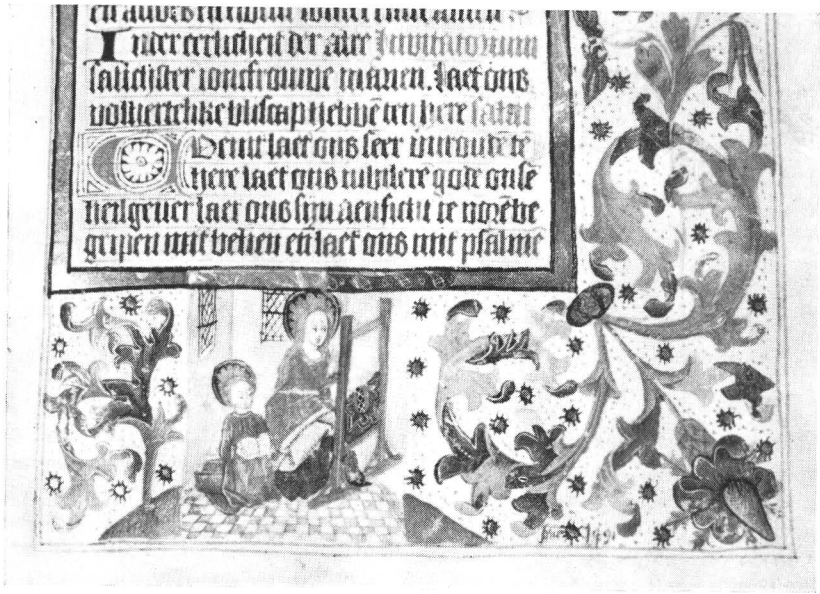 In der eerlicheit der alre Invitatorium
salichster joncfrouwe marien. Laet ons
volhertelike bliscap hebbē den here salat
Uenit laet ons seer vuroudē dē
here laet ons iubilerē gode onsē
heilgever laet ons sijn aensicht te vorē be
gripen mit belien eñ laet ons mit psalmē